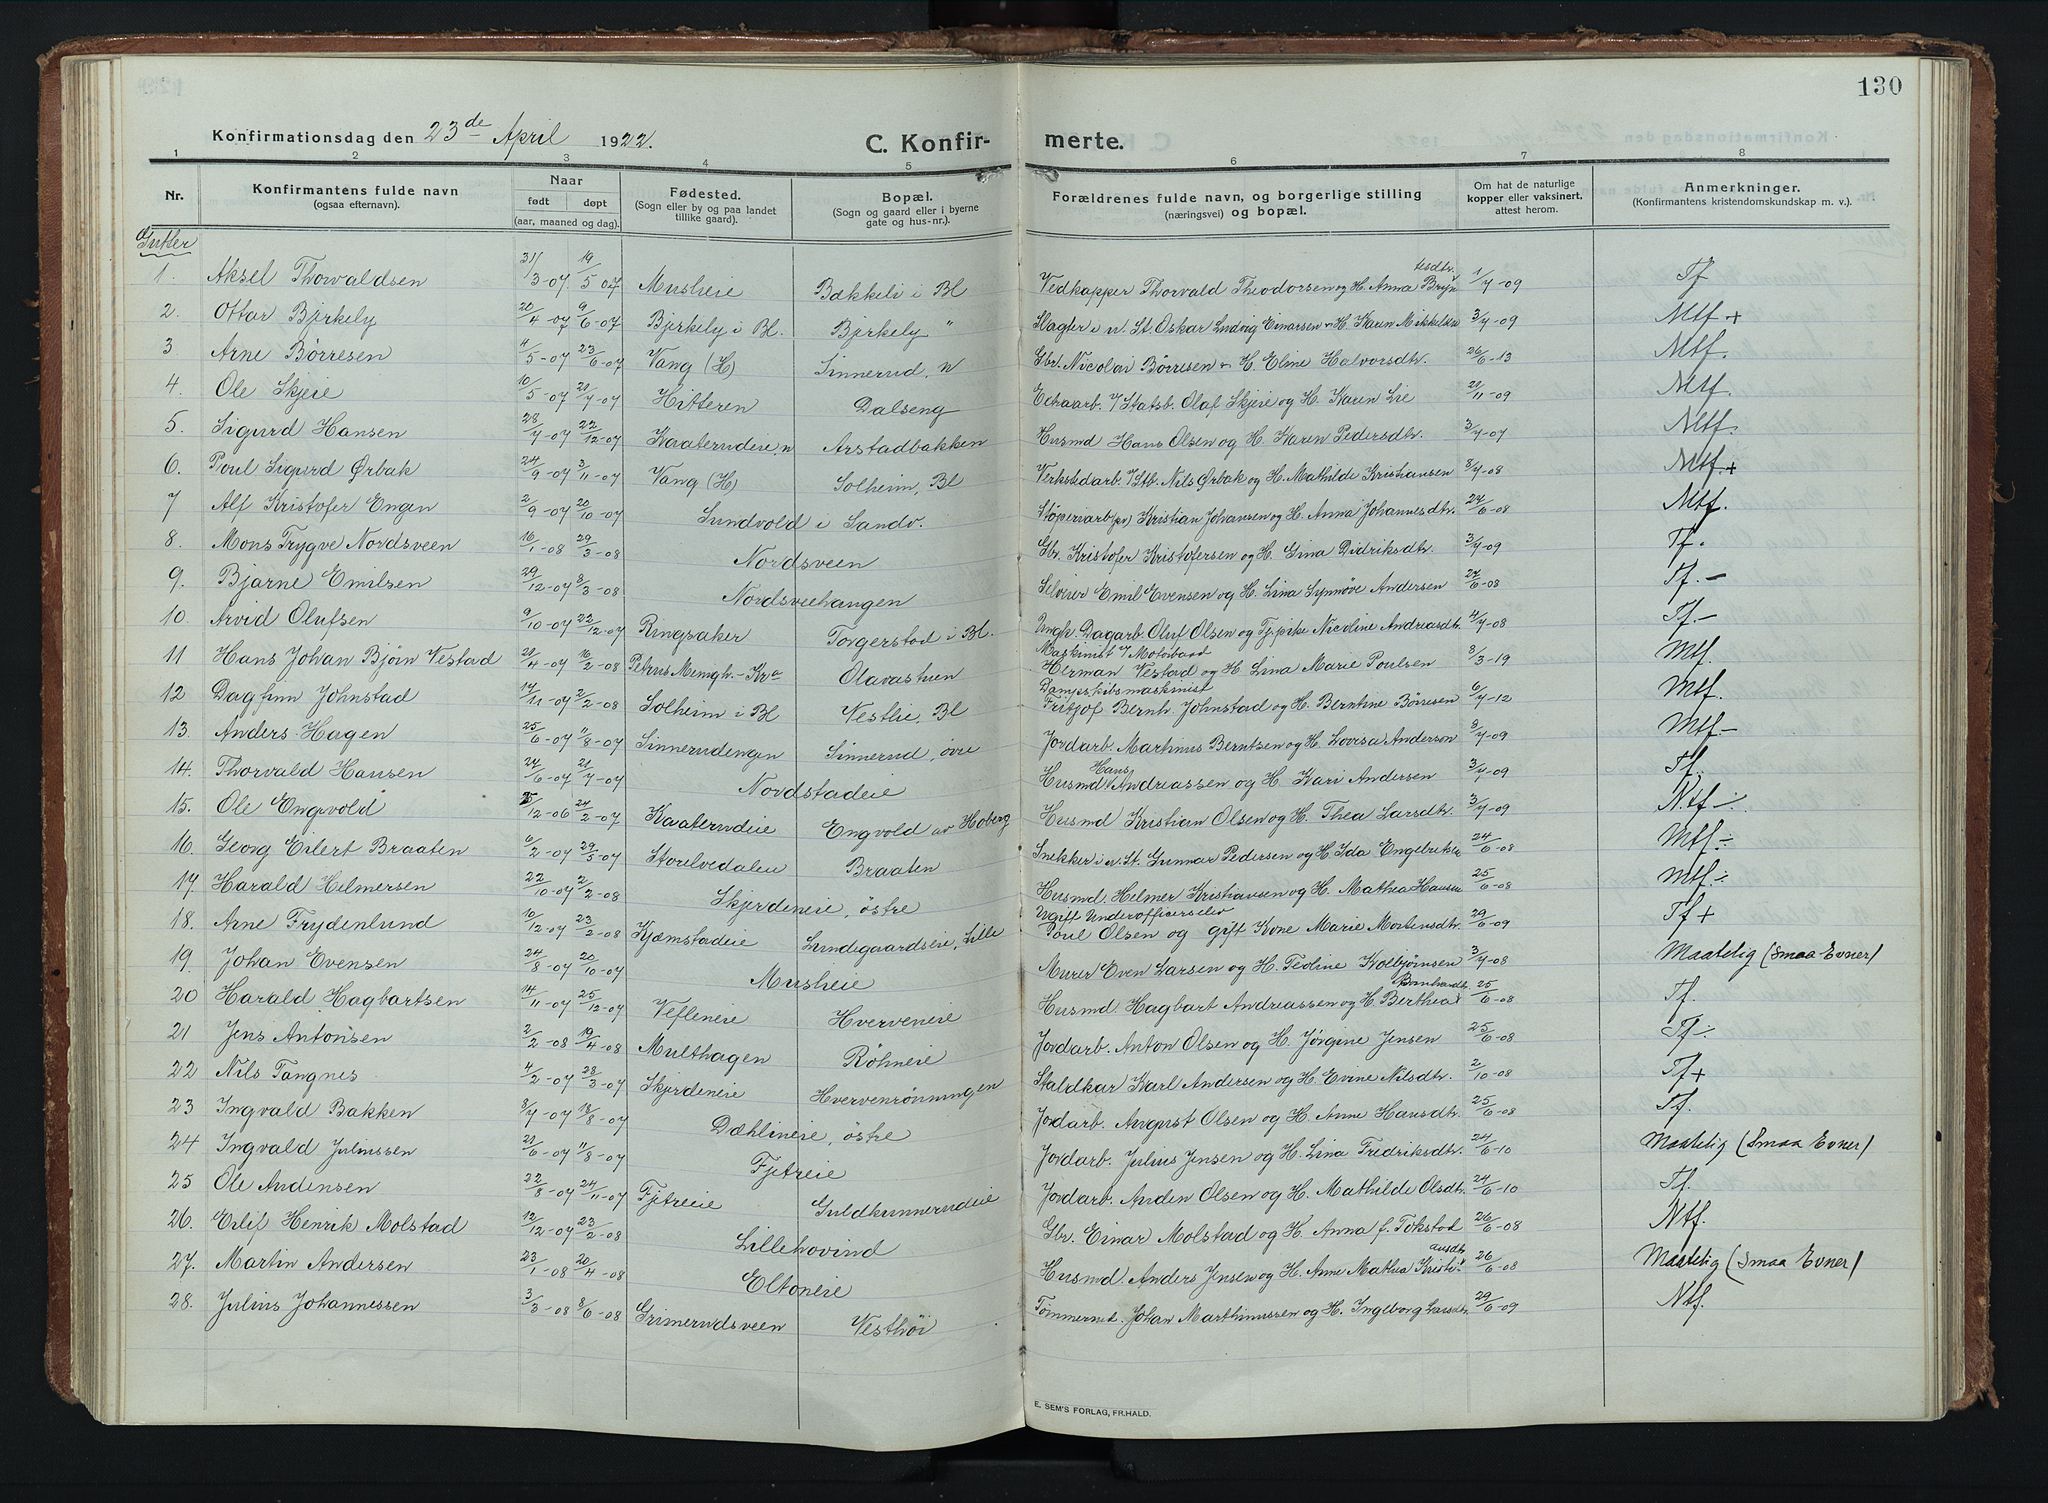 130
Konfirmationsdag den 23de April 1922.
C. Konfir- merte.
1 2 3 4 5 6 7 8
Nr. Konfirmantens fulde navn (ogsaa efternavn). Naar født døpt (aar, maaned og dag). Fødested. (Sogn eller by og paa landet tillike gaard). Bopæl. (Sogn og gaard eller i byerne gate og hus-nr.). Forældrenes fulde navn, og borgerlige stilling (næringsvei) og bopæl. Om hat de naturlige kopper eller vaksinert, attest herom. Anmerkninger. (Konfirmantens kristendomskundskap m. v.).
Gutter
1. Aksel Thorvaldsen 31/3-07 19/5 07 Musheie Bækkeli i Bl Vedkapper Thorvald Theodorsen og H. Anna Bryntesdtr. 1/7-09 Tf
2. Ottar Bjerkely 20/4-07 9/6-07 Bjerkely i Bl. Bjerkely " Slagter i u. St. Oskar Ludvig Einarsen & H. Karen Mikkelsen 3/7-09 Mtf +
3 Arne Börresen 4/5-07 23/6-07 Vang (H) Sinnerud, n Gbr. Nicolai Börresen & H. Eline Halvorsdtr. 26/6-13 Mtf.
4. Ole Skjeie 10/5-07 21/7-07 Hitteren Dalseng v/Statsb. Olaf Skjeie og H. Karen Lie 21/11-09 Mtf
5. Sigurd Hansen 28/7-07 22/12-07 Kaaterudeie, n Arstadbakken Husmd Hans Olsen og H. Karen Pedersdtr. 3/7-07 Mtf.
6. Poul Sigurd Ørbak 24/9-07 3/11-07 Vang (H) Solheim, Bl Verkstedarb. v/Stb. Nils Ørbak og H. Mathilde Kristiansen 8/7-08 Mtf+
7 Alf Kristofer Engen 2/9-07 20/10-07 Sundvold i Sandv. Støperiarb (pv) Kristian Johansen og H. Anna Johannesdtr. 27/6-08 Mtf.
8. Mons Trygve Nordsveen 16/1-08 29/3-08 Nordsveen Gbr. Kristofer Kristofersen og H. Gina Didriksdtr. 3/7-09 Tf.
9. Bjarne Emilsen 29/12-07 8/3-08 Nordsveehangen Selveier Emil Evensen og H. Lina Synnøve Andersen 27/6-08 Tf. -
10. Arvid Olufsen 9/10-07 22/12-07 Ringsaker Torgerstad i Bl. Ungk. Dagarb. Oluf Olsen og Tj.pike Nicoline Andreasdtr. 4/7-08 Tf. -
11 Hans Johan Bjørn Vestad 21/4-07 16/2-08 Petrus Menigh. - Kra Olavastuen Maskinist v/Motorbaad Herman Vestad og H. Lina Marie Poulsen 8/3-19 Mtf.
12 Dagfinn Johnstad 14/11-07 2/2-08 Solheim i Bl Vestlie, Bl Dampskibsmaskinist Fritjof Bernh. Johnstad og H. Berntine Børresen 6/7-12 Mtf.
13. Anders Hagen 25/6-07 11/8-07 Sinnerudengen Sinnerud, øvre Jordarb. Martinus Berntsen og H. Lovisa Anderson 8/7-09 Mtf -
14. Thorvald Hansen 27/6-07 21/7-07 Nordstadeie Husmd Hans Andreassen og H. Kari Andersen 3/7-09 Tf.
15. Ole Engvold 12-06 24/2-07 Kaaterudeie Engvold av Hoberg Husmd Kristian Olsen og H. Thea Larsdtr. 3/7-09 Ntf -
16. Georg Eilert Braaten 6/2-07 29/5-07 Storelvedalen Braaten Snekker i u. St. Gunnar Pedersen og H. Ida Engebretsen 24/6-08 Mtf -
17. Harald Helmersen 22/10-07 2/2-08 Skjerdeneie, östre Husmd. Helmer Kristiansen og H. Mathea Hansen 25/6-08 Mtf -
18. Arne Frydenlund 10/12-07 23/2-08 Kjæmstadeie Lundegaardseie, Lille Ugift Underofficerselev Poul Olsen og gift Kone Marie Mortensdtr. 29/6-09 Tf +
19. Johan Evensen 24/8-07 20/10-07 Musheie Murer Even Larsen og H. Teoline Kolbjørnsen 3/7-08 Maatelig (Smaa Evner)
20 Harald Hagbartsen 14/11-07 25/12-07 Vefleneie Hverveneie Husmd. Hagbart Andreassen og H. Berthea Bernhardtr. 25/6-08 Tf.
21 Jens Antonsen 2/2-08 19/4-08 Multhagen Röhneie Jordarb. Anton Olsen og H. Jørgine Jensen 25/6-08 Tf -
22 Nils Tangnes 4/2-07 28/3-07 Skjerdeneie Hvervenrönningen Staldkar Karl Andersen og H. Evine Nilsdtr. 2/10-08 Tf+
23 Ingvald Bakken 8/7-07 18/8-07 Dæhlineie, östre Jordarb. August Olsen og H. Anne Hansdtr. 25/6-08 Tf.
24 Ingvald Juliussen 21/6-07 11/8-07 Fjetreie Jordarb. Julius Jensen og H. Lina Fredriksdtr. 24/6-10 Maatelig (Smaa Evner)
25 Ole Andensen 22/8-07 24/11-07 Fjetreie Guldkunnerudeie Jordarb. Anden Olsen og H. Mathilde Olsdtr. 24/6-10 Tf.
26. Erlif Henrik Molstad 12/12-07 23/2-08 Lillehovind Gbr. Einar Molstad og H. Anna f. Tokstad 26/6-08 Ntf.
27. Martin Andersen 23/1-08 20/4-08 Eltoneie Husmd. Anders Jensen og H. Anne Mathea Kristiansdtr 26/6-08 Maatelig (Smaa Evner)
28. Julius Johannessen 3/3-08 8/6-08 Grimerudsveen Vesthöi Tømmermd. Johan Marthinussen og H. Ingeborg Larsdtr. 29/6-09 Ntf.
E. SEM'S FORLAG, FR.HALD.